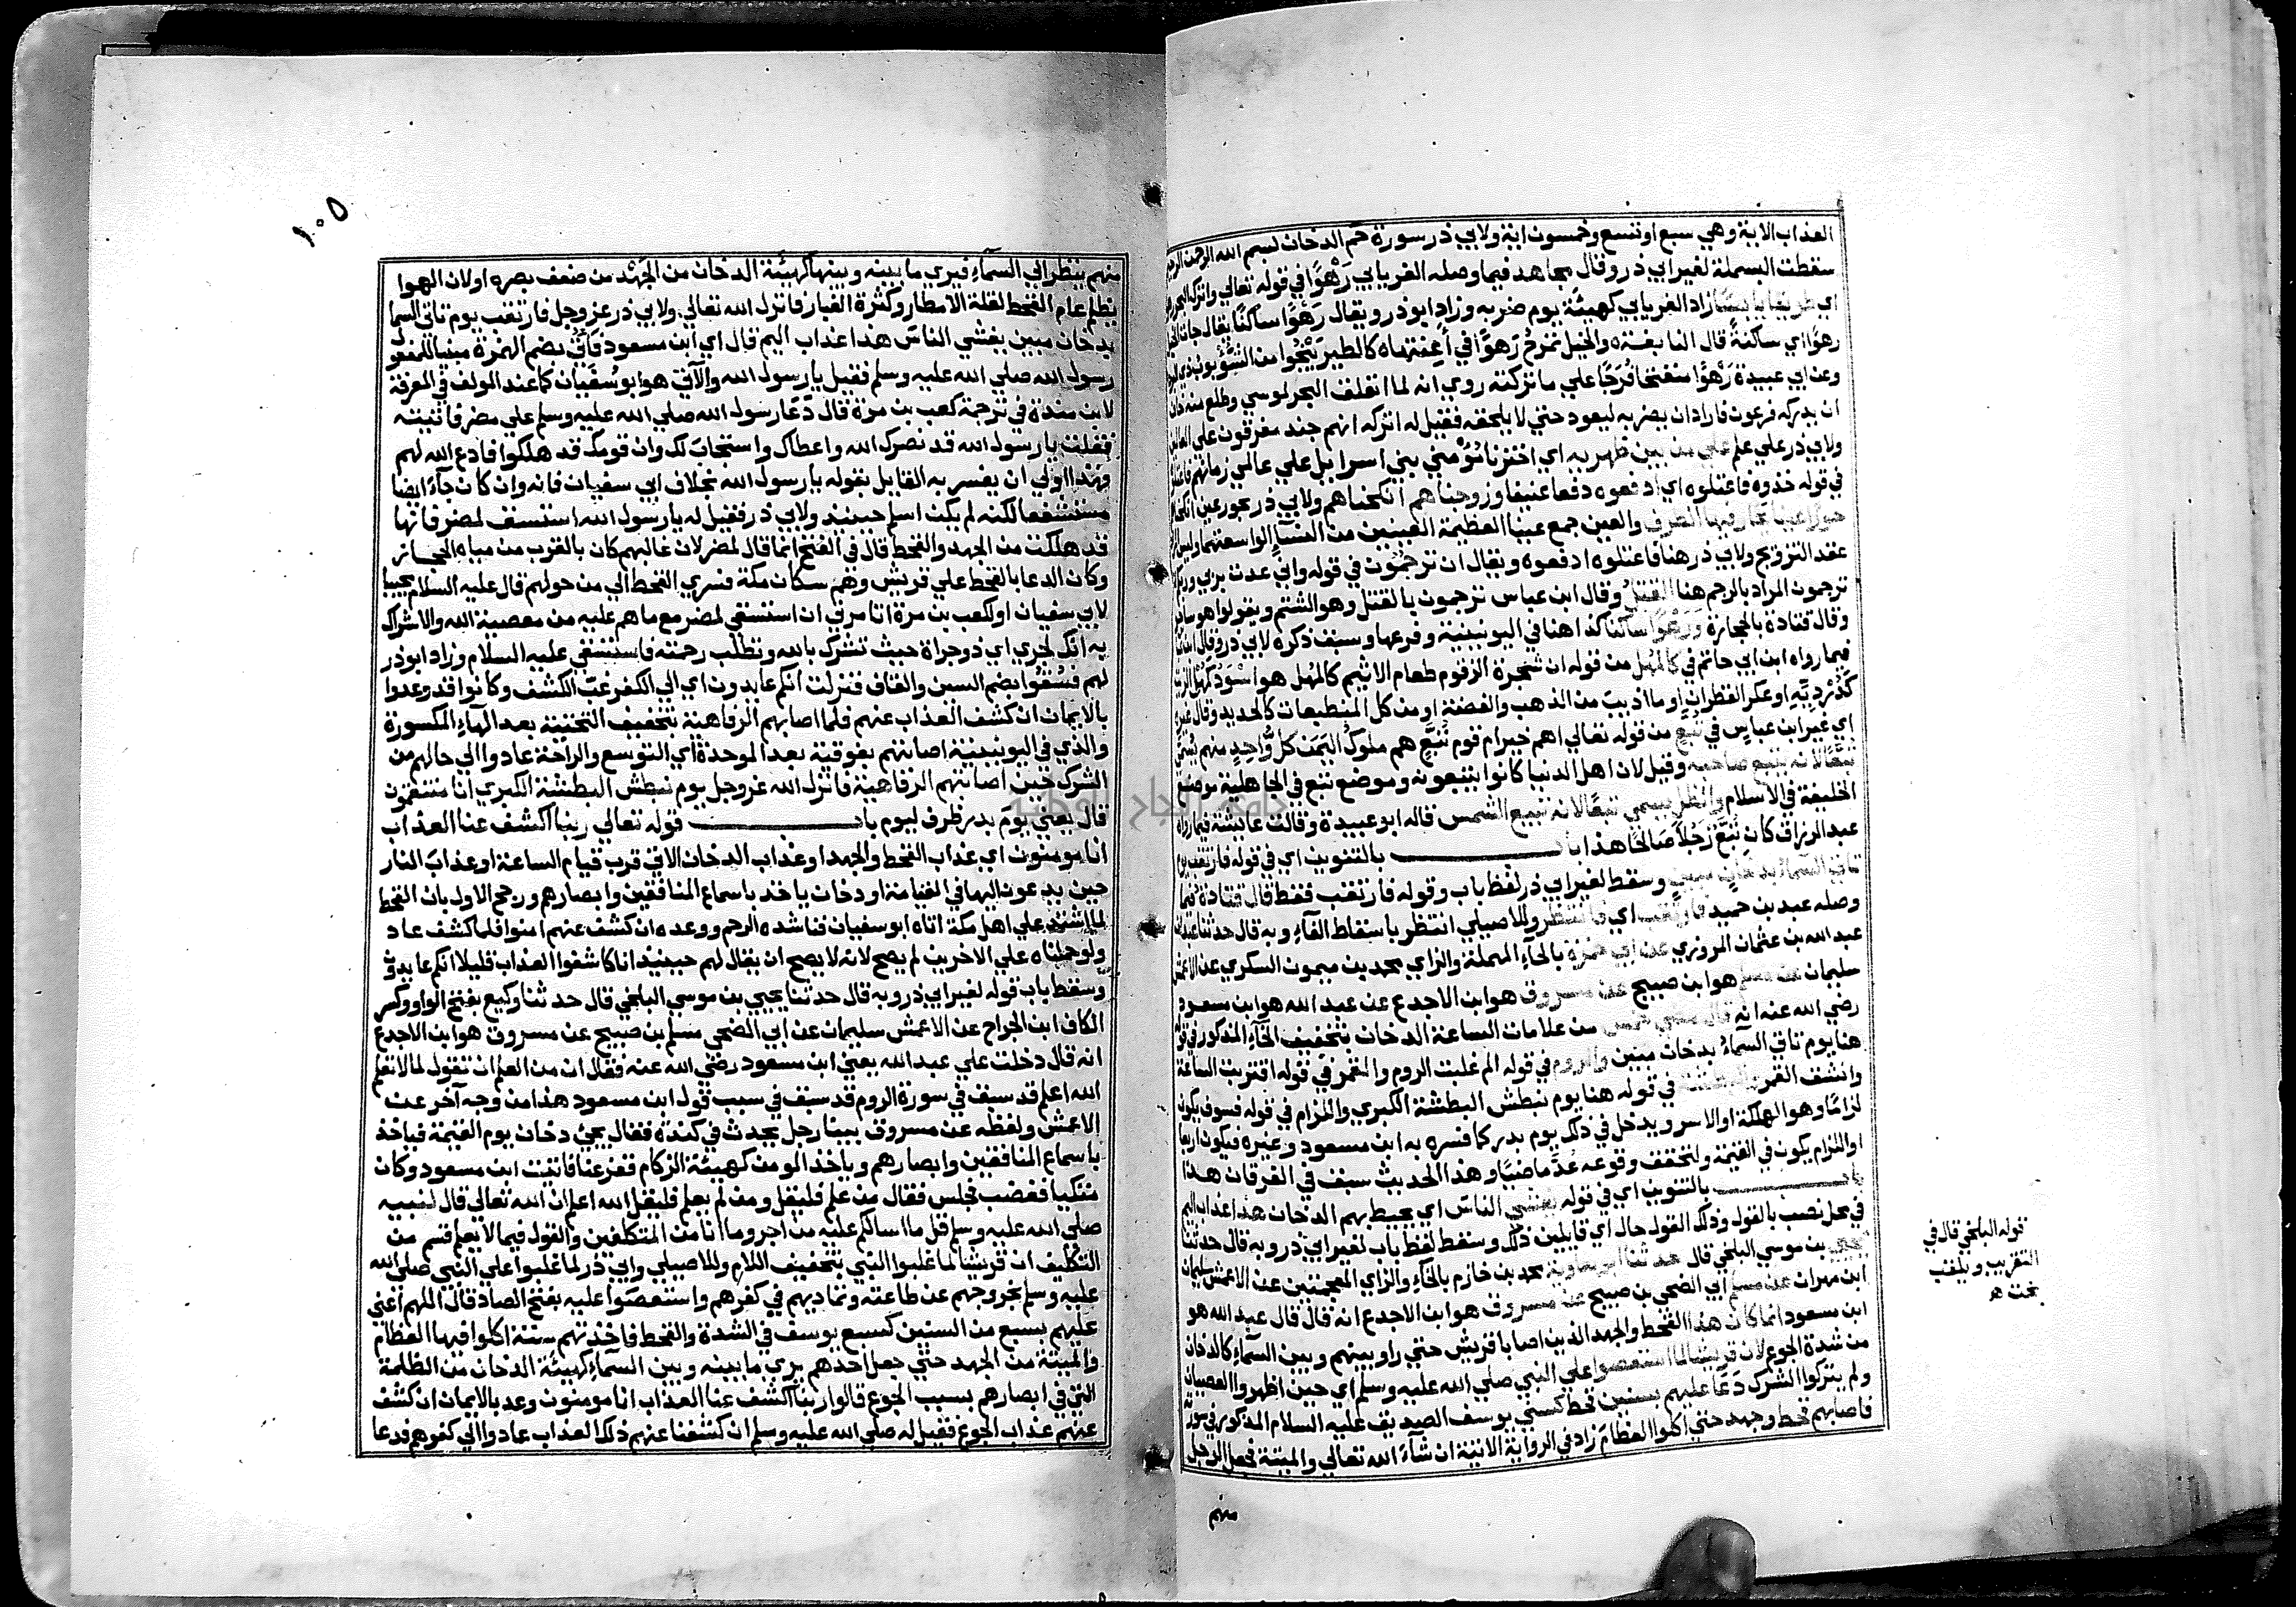 العذاب الاية وهي سبع او تسع وخمسون اية ولابي ذر سورة حم الدخان بسم الله الرحمن الرحيم
سقطت البسملة لغير ابي ذر وقال مجاهد فيما وصله الفريابي رهوا في قوله تعالي واترك البحر رهوا
اي طريقا يابسا زاد الفريابي كهيئة يوم ضربه وزاد ابوذر ويقال رهوا ساكنا يقال جات الخيل
رهوا اي ساكنة قال النابغة والخيل تمزح رهوا في اعنتها كالطير ينجوا من الشؤبوب ذي البرد
وعن ابي عبيدة رهوا منفتحا فرجا علي ما تركته روي انه لما انفلق البحر لموسي وطلع منه خاف
ان يدركه فرعون فاراد ان يضربه ليعود حتي لا يلحقه فقيل له اتركه انهم جند مغرقون علي العالمين
ولابي ذر علي علم علي من بين ظهريه اي اخترنا مؤمني بني اسرايل علي عالمي زمانهم فاعتلوه
في قوله خذوه فاعتلوه اي ادفعوه دفعا عنيفا وزوجناهم انكحناهم ولابي ذر بحور عين انكحناهم
حورا عينا يحار فيها الطرف والعين جمع عينا العظيمة العينين من النسآء الواسعتهما وليس المراد
عقد التزويج ولابي ذر هنا فاعتلوه ادفعوه ويقال ان ترجمون في قوله واني عذت بربي وربكم ان
ترجمون المراد بالرجم هنا القتل وقال ابن عباس ترجمون بالقتل وهو الشتم ويقولوا هو ساحر
وقال قتادة بالحجارة ورهوا ساكنا كذا هنا في اليونينية وفرعها وسبق ذكره لابي ذر وقال ابن عباس
فيما رواه ابن ابي حاتم في كالمهل من قوله ان شجرة الزقوم طعام الاثيم كالمهل هو اسود كمهل الزيت
كدرديه او عكر القطران او ما اذيب من الذهب والفضة او من كل المنطبعات كالحديد وقال غيره
اي غير ابن عباس في تبع من قوله تعالي اهم خير ام قوم تبع هم ملوك اليمن كل واحد منهم يسمي
تبعا لانه يتبع صاحبه وقيل لان اهل الدنيا كانوا يتبعونه وموضع تبع في الجاهلية موضع
الخليفة في الاسلام والظل يسمي تبعا لانه تتبع الشمس قاله ابو عبيدة وقالت عايشة فيما رواه
عبد الرزاق كان تبع رجلا صالحا هذا باب بالتنوين اي في قوله فارتقب يوم
تاتي السمآء بدخان مبين وسقط لغير ابي ذر لفظ باب وقوله فارتقب فقط قال قتادة فيما
وصله عبد بن حميد فارتقب اي فانتظر وللاصيلي انتظر باسقاط الفآء وبه قال حدثنا عبدان
عبد الله بن عثمان المروزي عن ابي حمزة بالحآء المهملة والزاي محمد بن ميمون السكري عن الاعمش
سليمان عن مسلم هو ابن صبيح عن مسروق هو ابن الاجدع عن عبد الله هو ابن مسعود
رضي الله عنه انه قال مضي خمس من علامات الساعة الدخان بتخفيف الخآء المذكور في قوله
هنا يوم تاتي السمآء بدخان مبين والروم في قوله الم غلبت الروم والقمر في قوله اقتربت الساعة
وانشق القمر والبطشة في قوله هنا يوم نبطش البطشة الكبري واللزام في قوله فسوف يكون
لزاما وهو الهلكة او الاسر ويدخل في ذلك يوم بدر كما فسره به ابن مسعود وغيره فيكون اربعا
او اللزام يكون في القيمة ولتحقق وقوعه عد ماضيا وهذا الحديث سبق في الفرقان هذا
باب بالتنوين اي في قوله يغشي الناس اي يحيط بهم الدخان هذا عذاب اليم
في محل نصب بالقول وذلك القول حال اي قايلين ذلك وسقط لفظ باب لغير ابي ذر وبه قال حدثنا
يحيي بن موسي البلخي قال حدثنا ابو معاوية محمد بن خازم بالخآء والزاي المعجمتين عن الاعمش سليمان
ابن مهران عن مسلم ابي الضحي بن صبيح عن مسروق هو ابن الاجدع انه قال قال عبد الله هو
ابن مسعود انما كان هذا القحط والجهد الذين اصابا قريش حتي راوا بينهم وبين السمآء كالدخان
من شدة الجوع لان قريشا لما استعصوا علي النبي صلي الله عليه وسلم اي حين اظهروا العصيان
ولم يتركوا الشرك دعا عليهم بسنين قحط كسني يوسف الصديق عليه السلام المذكور في سورته
فاصابهم قحط وجهد حتي اكلوا العظام زاد في الرواية الاتية ان شآء الله تعالي والميتة فجعل الرجل
منهم
قوله البلخي قال في
التقريب ويلقب
بخت ه
١٠٥
منهم ينظر الي السمآء فيري ما بينه وبينها كهيئة الدخان من الجهد من ضعف بصره او لان الهوا
يظلم عام القحط لقلة الامطار وكثرة الغبار فانزل الله تعالي ولابي ذر عز وجل فارتقب يوم تاتي السما
بدخان مبين يغشي الناس هذا عذاب اليم قال اي ابن مسعود فاتي بضم الهمزة مبنيا للمفعول
رسول الله صلي الله عليه وسلم فقيل يا رسول الله والآتي هو ابو سفيان كما عند المولف في المعرفة
لابن مندة في ترجمة كعب بن مرة قال دعا رسول الله صلي الله عليه وسلم علي مضر فاتيته
فقلت يا رسول الله قد نصرك الله واعطاك واستجاب لك وان قومك قد هلكوا فادع الله لهم
وهذا اولي ان يفسر به القايل بقوله يا رسول الله بخلاف ابي سفيان فانه وان كان جآء ايضا
مستشفعا لكنه لم يكن اسلم حينيذ ولابي ذر فقيل له يا رسول الله استسق لمضر فانها
قد هلكت من الجهد والقحط قال في الفتح انما قال لمضر لان غالبهم كان بالقرب من مياه الحجاز
وكان الدعا بالقحط علي قريش وهم سكان مكة فسري القحط الي من حولهم قال عليه السلام مجيبا
لابي سفيان او لكعب بن مرة اتامرني ان استسقي لمضر مع ما هم عليه من معصية الله والاشراك
به انك لجري اي ذو جراة حيث تشرك بالله وتطلب رحمته فاستسقي عليه السلام وزاد ابوذر
لهم فسقوا بضم السين والقاف فنزلت انكم عايدون اي الي الكفر غب الكشف وكانوا قد وعدوا
بالايمان ان كشف العذاب عنهم فلما اصابهم الرفاهية بتخفيف التحتية بعد الهآء المكسورة
والذي في اليونينية اصابتهم بفوقية بعد الموحدة اي التوسع والراحة عادوا الي حالهم من
الشرك حين اصابتهم الرفاهية فانزل الله عز وجل يوم نبطش البطشة الكبري انا منتقمون
قال يعني يوم بدر ظرف ليوم باب قوله تعالي ربنا اكشف عنا العذاب
انا مومنون اي عذاب القحط والجهد او عذاب الدخان الاتي قرب قيام الساعة او عذاب النار
حين يدعون اليها في القيامة او دخان ياخذ باسماع المنافقين وابصارهم ورجح الاول بان القحط
لما اشتد علي اهل مكة اتاه ابو سفيان فناشده الرحم ووعده ان كشف عنهم امنوا فلما كشف عاد
ولو حملناه علي الاخرين لم يصح لانه لا يصح ان يقال لهم حينيذ انا كاشفوا العذاب قليلا انكم عايدون
وسقط باب قوله لغير ابي ذر وبه قال حدثنا يحيي بن موسي البلخي قال حدثنا وكيع بفتح الواو وكسر
الكاف ابن الجراح عن الاعمش سليمان عن ابي الضحي مسلم بن صبيح عن مسروق هو ابن الاجدع
انه قال دخلت علي عبد الله يعني ابن مسعود رضي الله عنه فقال ان من العلم ان تقول لما لا تعلم
الله اعلم قد سبق في سورة الروم قد سبق في سبب قول ابن مسعود هذا من وجه آخر عن
الاعمش ولفظه عن مسروق بينا رجل يحدث في كندة فقال يجئ دخان يوم القيمة فياخذ
باسماع المنافقين وابصارهم وياخذ المومن كهيئة الزكام ففزعنا فاتيت ابن مسعود وكان
متكيا فغضب فجلس فقال من علم فليقل ومن لم يعلم فليقل الله اعلم ان الله تعالي قال لنبيه
صلي الله عليه وسلم قل ما اسالكم عليه من اجر وما انا من المتكلفين والقول فيما لا يعلم قسم من
التكليف ان قريشا لما غلبوا النبي بتخفيف اللام وللاصيلي وابي ذر لما غلبوا علي النبي صلي الله
عليه وسلم بخروجهم عن طاعته وتماديهم في كفرهم واستعصوا عليه بفتح الصاد قال اللهم اعني
عليهم بسبع من السنين كسبع يوسف في الشدة والقحط فاخذتهم سنة اكلوا فيها العظام
والميتة من الجهد حتي جعل احدهم يري ما بينه وبين السمآء كهيئة الدخان من الظلمة
التي في ابصارهم بسبب الجوع قالوا ربنا اكشف عنا العذاب انا مومنون وعد بالايمان ان كشف
عنهم عذاب الجوع فقيل له صلي الله عليه وسلم ان كشفنا عنهم ذلك العذاب عادوا الي كفرهم فدعا